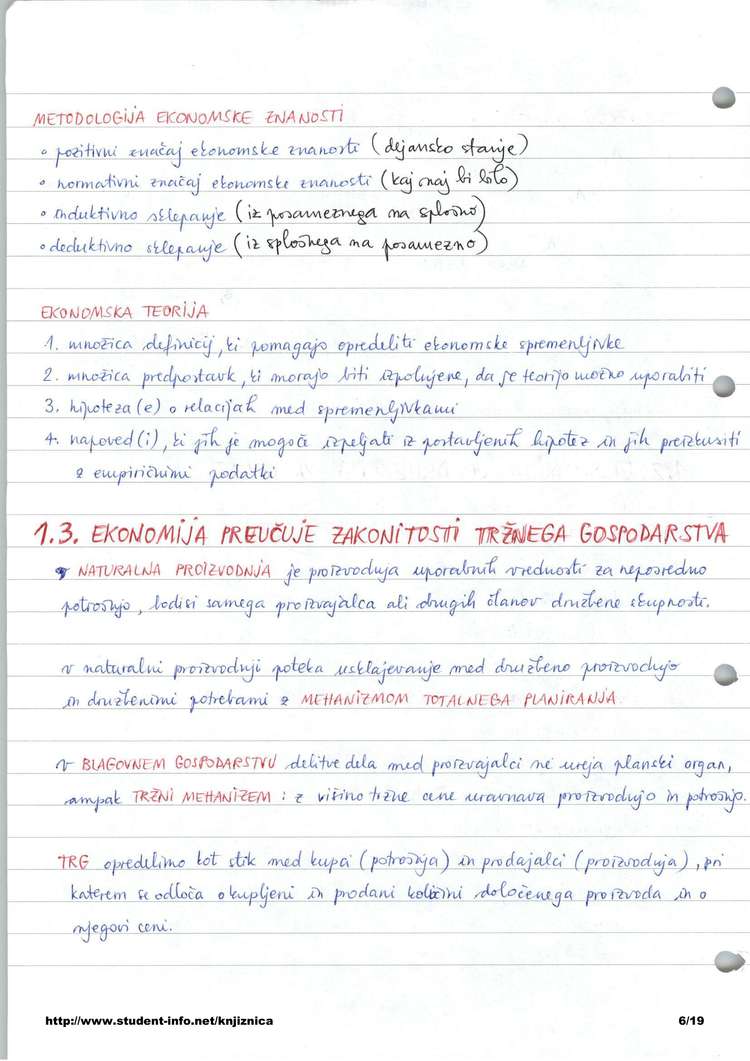 METODOLOGIJA EKONOMSKE ZNANOSTI
∘ pozitivni značaj ekonomske znanosti (dejansko stanje)
∘ normativni značaj ekonomske znanosti (kaj naj bi bilo)
∘ induktivno sklepanje (iz posameznega na splošno)
∘ deduktivno sklepanje (iz splošnega na posamezno)
EKONOMSKA TEORIJA
1. množica definicij, ki pomagajo opredeliti ekonomske spremenljivke
2. množica predpostavk, ki morajo biti izpolnjene, da je teorijo možno uporabiti
3. hipoteza (e) o relacijah med spremenljivkami
4. napoved (i), ki jih je mogoče izpeljati iz postavljenih hipotez in jih preizkusiti
z empiričnimi podatki
1.3. EKONOMIJA PREUČUJE ZAKONITOSTI TRŽNEGA GOSPODARSTVA
NATURALNA PROIZVODNJA je proizvodnja uporabnih vrednosti za neposredno
potrošnjo, bodisi samega proizvajalca ali drugih članov družbene skupnosti.
v naturalni proizvodnji poteka usklajevanje med družbeno proizvodnjo
in družbenimi potrebami z MEHANIZMOM TOTALNEGA PLANIRANJA.
v BLAGOVNEM GOSPODARSTVU delitve dela med proizvajalci ne ureja planski organ,
ampak TRŽNI MEHANIZEM : z višino tržne cene uravnava proizvodnjo in potrošnjo.
TRG opredelimo kot stik med kupci (potrošnja) in prodajalci (proizvodnja), pri
katerem se odloča o kupljeni in prodani količini določenega proizvoda in o
njegovi ceni.
http://www.student-info.net/knjiznica
6/19